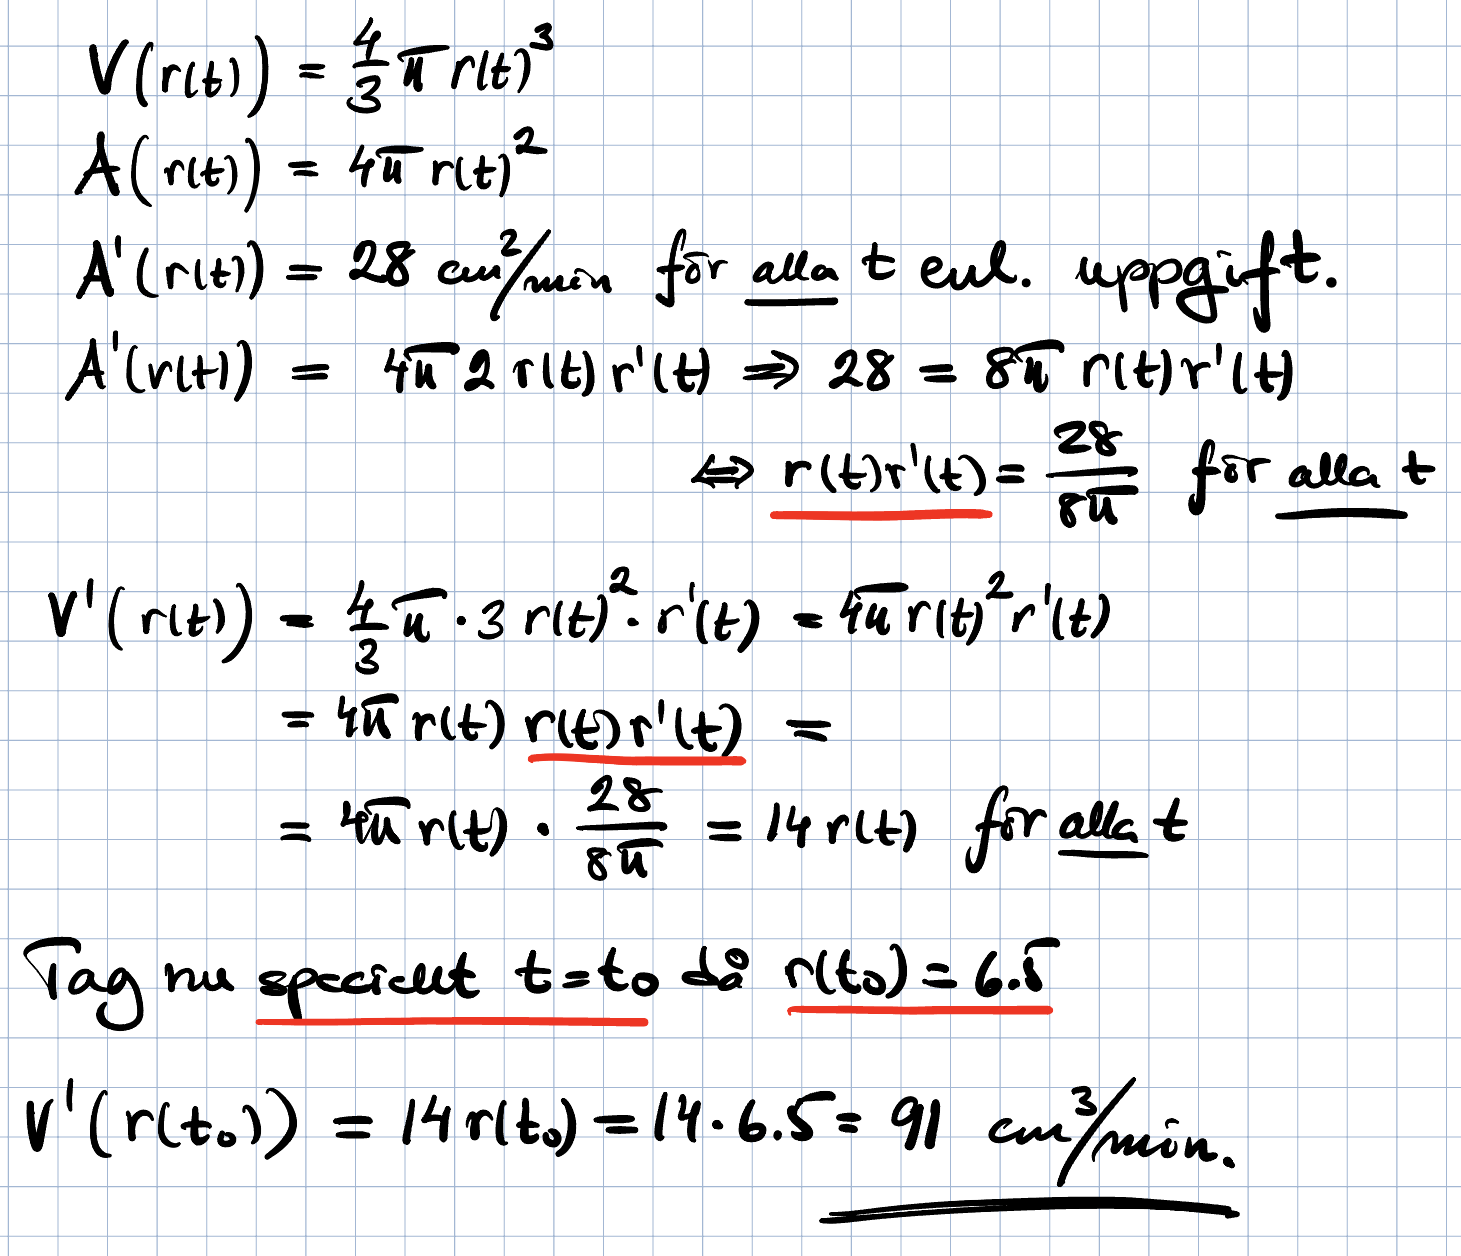 V(r(t)) = 4/3 π r(t)³
A(r(t)) = 4π r(t)²
A'(r(t)) = 28 cm²/min för alla t enl. uppgift.
A'(r(t)) = 4π 2 r(t) r'(t) ⇒ 28 = 8π r(t) r'(t)
⇔ r(t) r'(t) = 28/8π för alla t
V'(r(t)) = 4/3 π · 3 r(t)² · r'(t) = 4π r(t)² r'(t)
= 4π r(t) r(t) r'(t) =
= 4π r(t) · 28/8π = 14 r(t) för alla t
Tag nu speciellt t = t₀ då r(t₀) = 6.5
V'(r(t₀)) = 14 r(t₀) = 14 · 6.5 = 91 cm³/min.